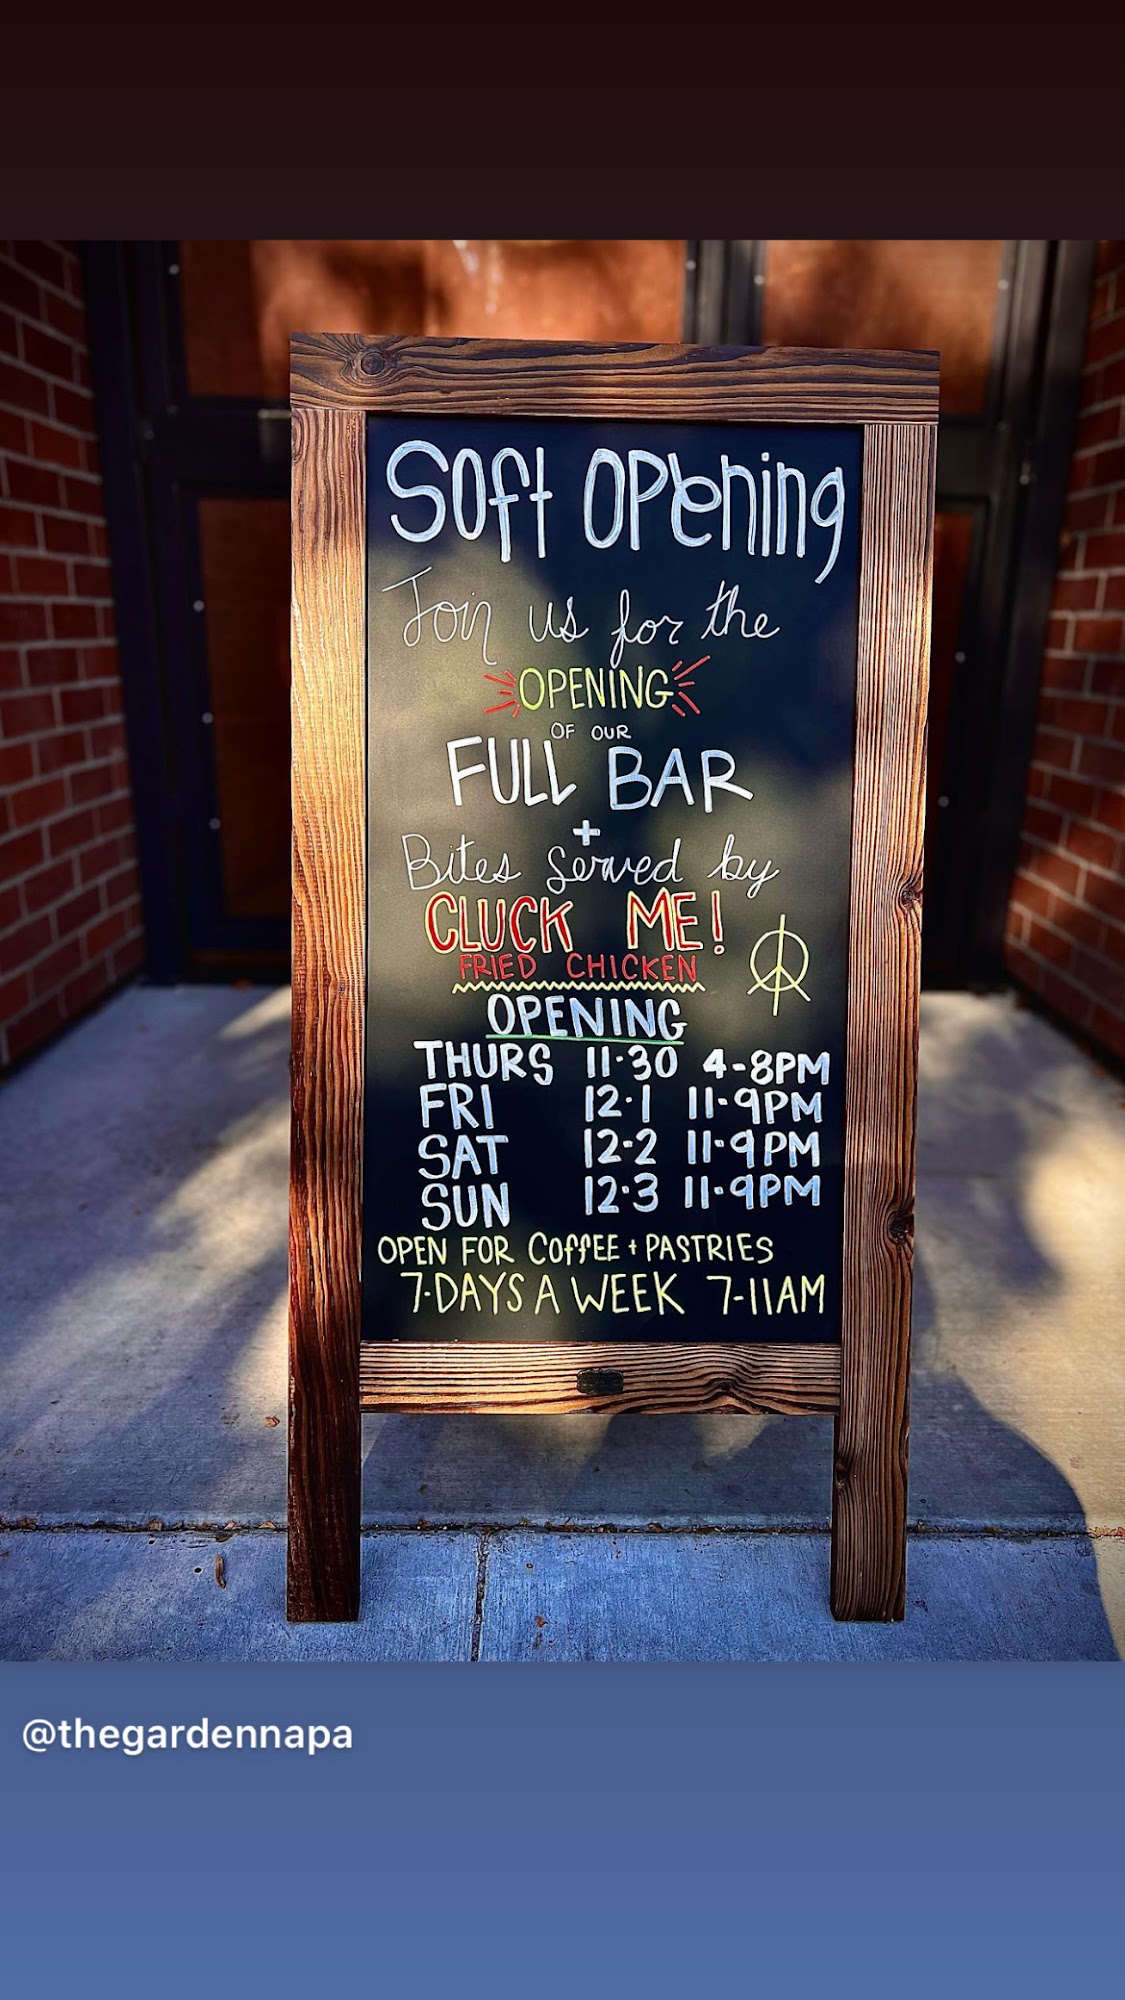 Soft OPening
Join us for the
OPENING
OF OUR
FULL BAR
+
Bites Served by
CLUCK ME!
FRIED CHICKEN
OPENING
THURS 11·30 4-8PM
FRI 12·1 11-9PM
SAT 12·2 11-9PM
SUN 12·3 11-9PM
OPEN FOR COffEE + PASTRIES
7-DAYS A WEEK 7-11AM
@thegardennapa